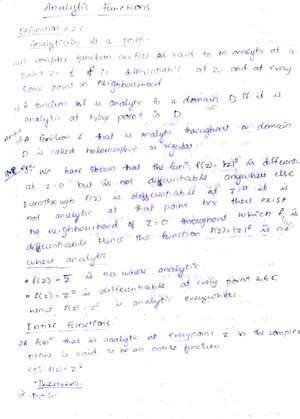 Analytic Functions
Definition 3.2.2
Analyticity at a point:-
A complex function w=f(z) is said to be analytic at a
point z₀ if f is differentiable at z₀ and at every
some point in neighbourhood
→ A function f is analytic in a domain D if it is
analytic at every point in D
→ A function f that is analytic throughout a domain
D is called holomorphic or regular.
We have shown that the funⁿ f(z)=|z|² is different
at z=0 but is not differentiable anywhere else
Eventhough f(z) is differentiable at z=0 it is
not analytic at that point bcz there exist
no neighbourhood of z=0 throughout which f is
differentiable Hence the function f(z)=|z|² is no
where analytic
* f(z)=z̅ is no where analytic
* f(z)=z² is differentiable at every point z∈C
hence f(z)=z² is analytic everywhere.
Entire Functions:
→ A funⁿ that is analytic at every point z in the complex
plane is said to be an entire function
eg: f(z)=z²
Theorem:-